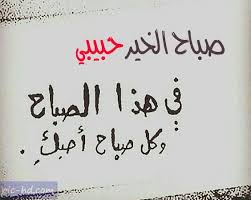 صباح الخير حبيبي
في هذا الصباح
وكل صباح أحبكِ .
pic-hd.com